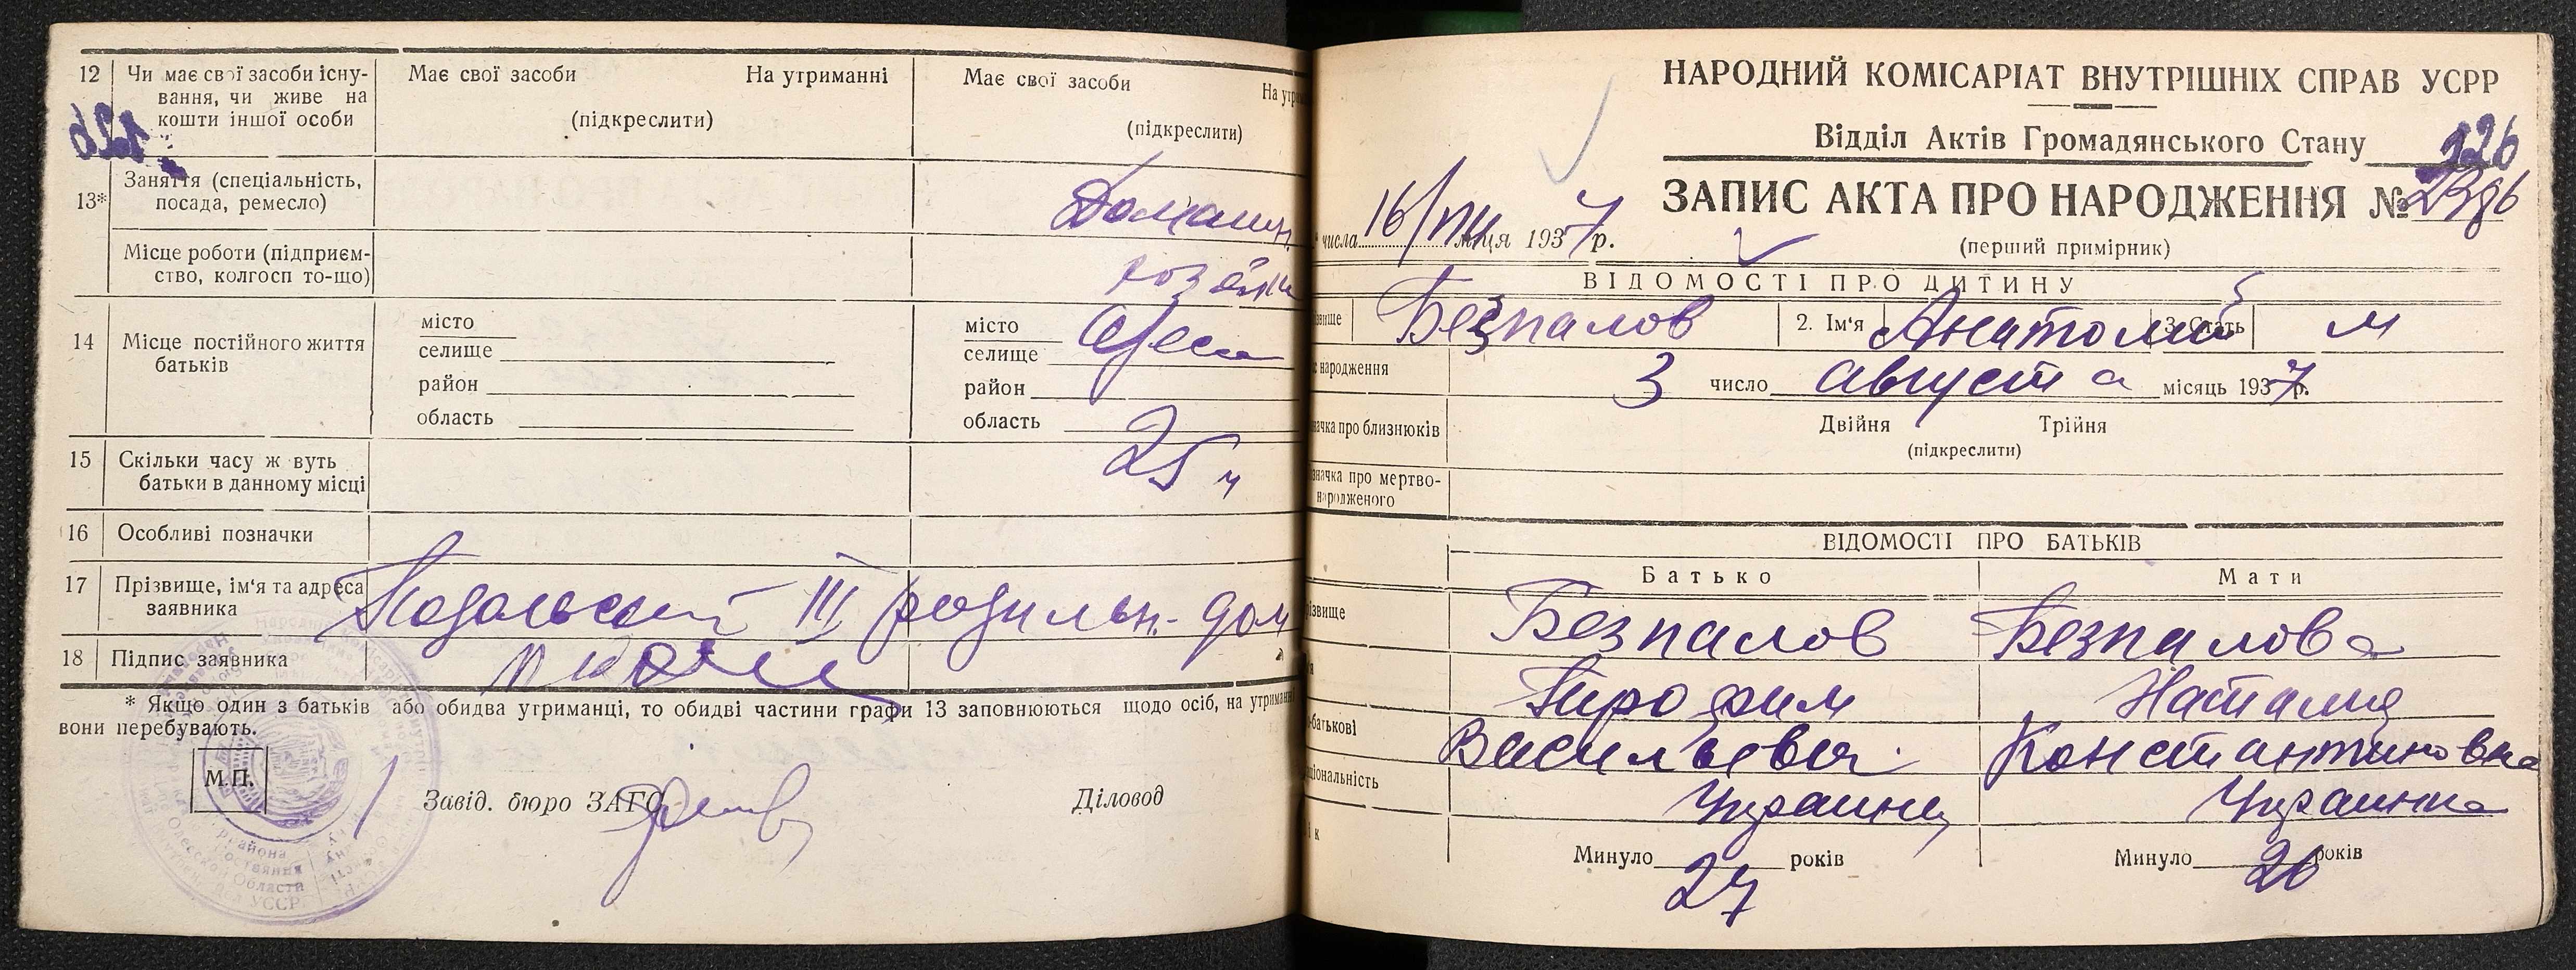 12 Чи має свої засоби існу-
вання, чи живе на
кошти іншої особи
Має свої засоби На утриманні
(підкреслити)
Має свої засоби На утрим
(підкреслити)
126
13* Заняття (спеціальність,
посада, ремесло)
Домашн
Місце роботи (підприєм-
ство, колгосп то-що)
хозяйк
14 Місце постійного життя
батьків
місто
селище
район
область
місто Одесса
селище
район
область
15 Скільки часу ж вуть
батьки в данному місці
25
16 Особливі позначки
17 Прізвище, ім'я та адреса
заявника
III родильн. дом
18 Підпис заявника
* Якщо один з батьків або обидва утриманці, то обидві частини графи 13 заповнюються щодо осіб, на утриманні
вони перебувають.
М.П.
Завід. бюро ЗАГС Діловод
района
Одесской Области
УССР
НАРОДНИЙ КОМІСАРІАТ ВНУТРІШНІХ СПРАВ УСРР
Відділ Актів Громадянського Стану 126
ЗАПИС АКТА ПРО НАРОДЖЕННЯ № 2386
(перший примірник)
числа 16/VIII м-ця 1937 р.
ВІДОМОСТІ ПРО ДИТИНУ
звище Безпалов 2. Ім'я Анатолий 3. Стать м
с народження 3 число августа місяць 1937 р.
начка про близнюків Двійня Трійня
(підкреслити)
значка про мертво-
народженого
ВІДОМОСТІ ПРО БАТЬКІВ
Батько Мати
різвище Безпалов Безпалова
Трофим Наталия
-батькові Васильевич Константиновна
ціональність Украинец Украинка
ік Минуло 27 років Минуло 26 років